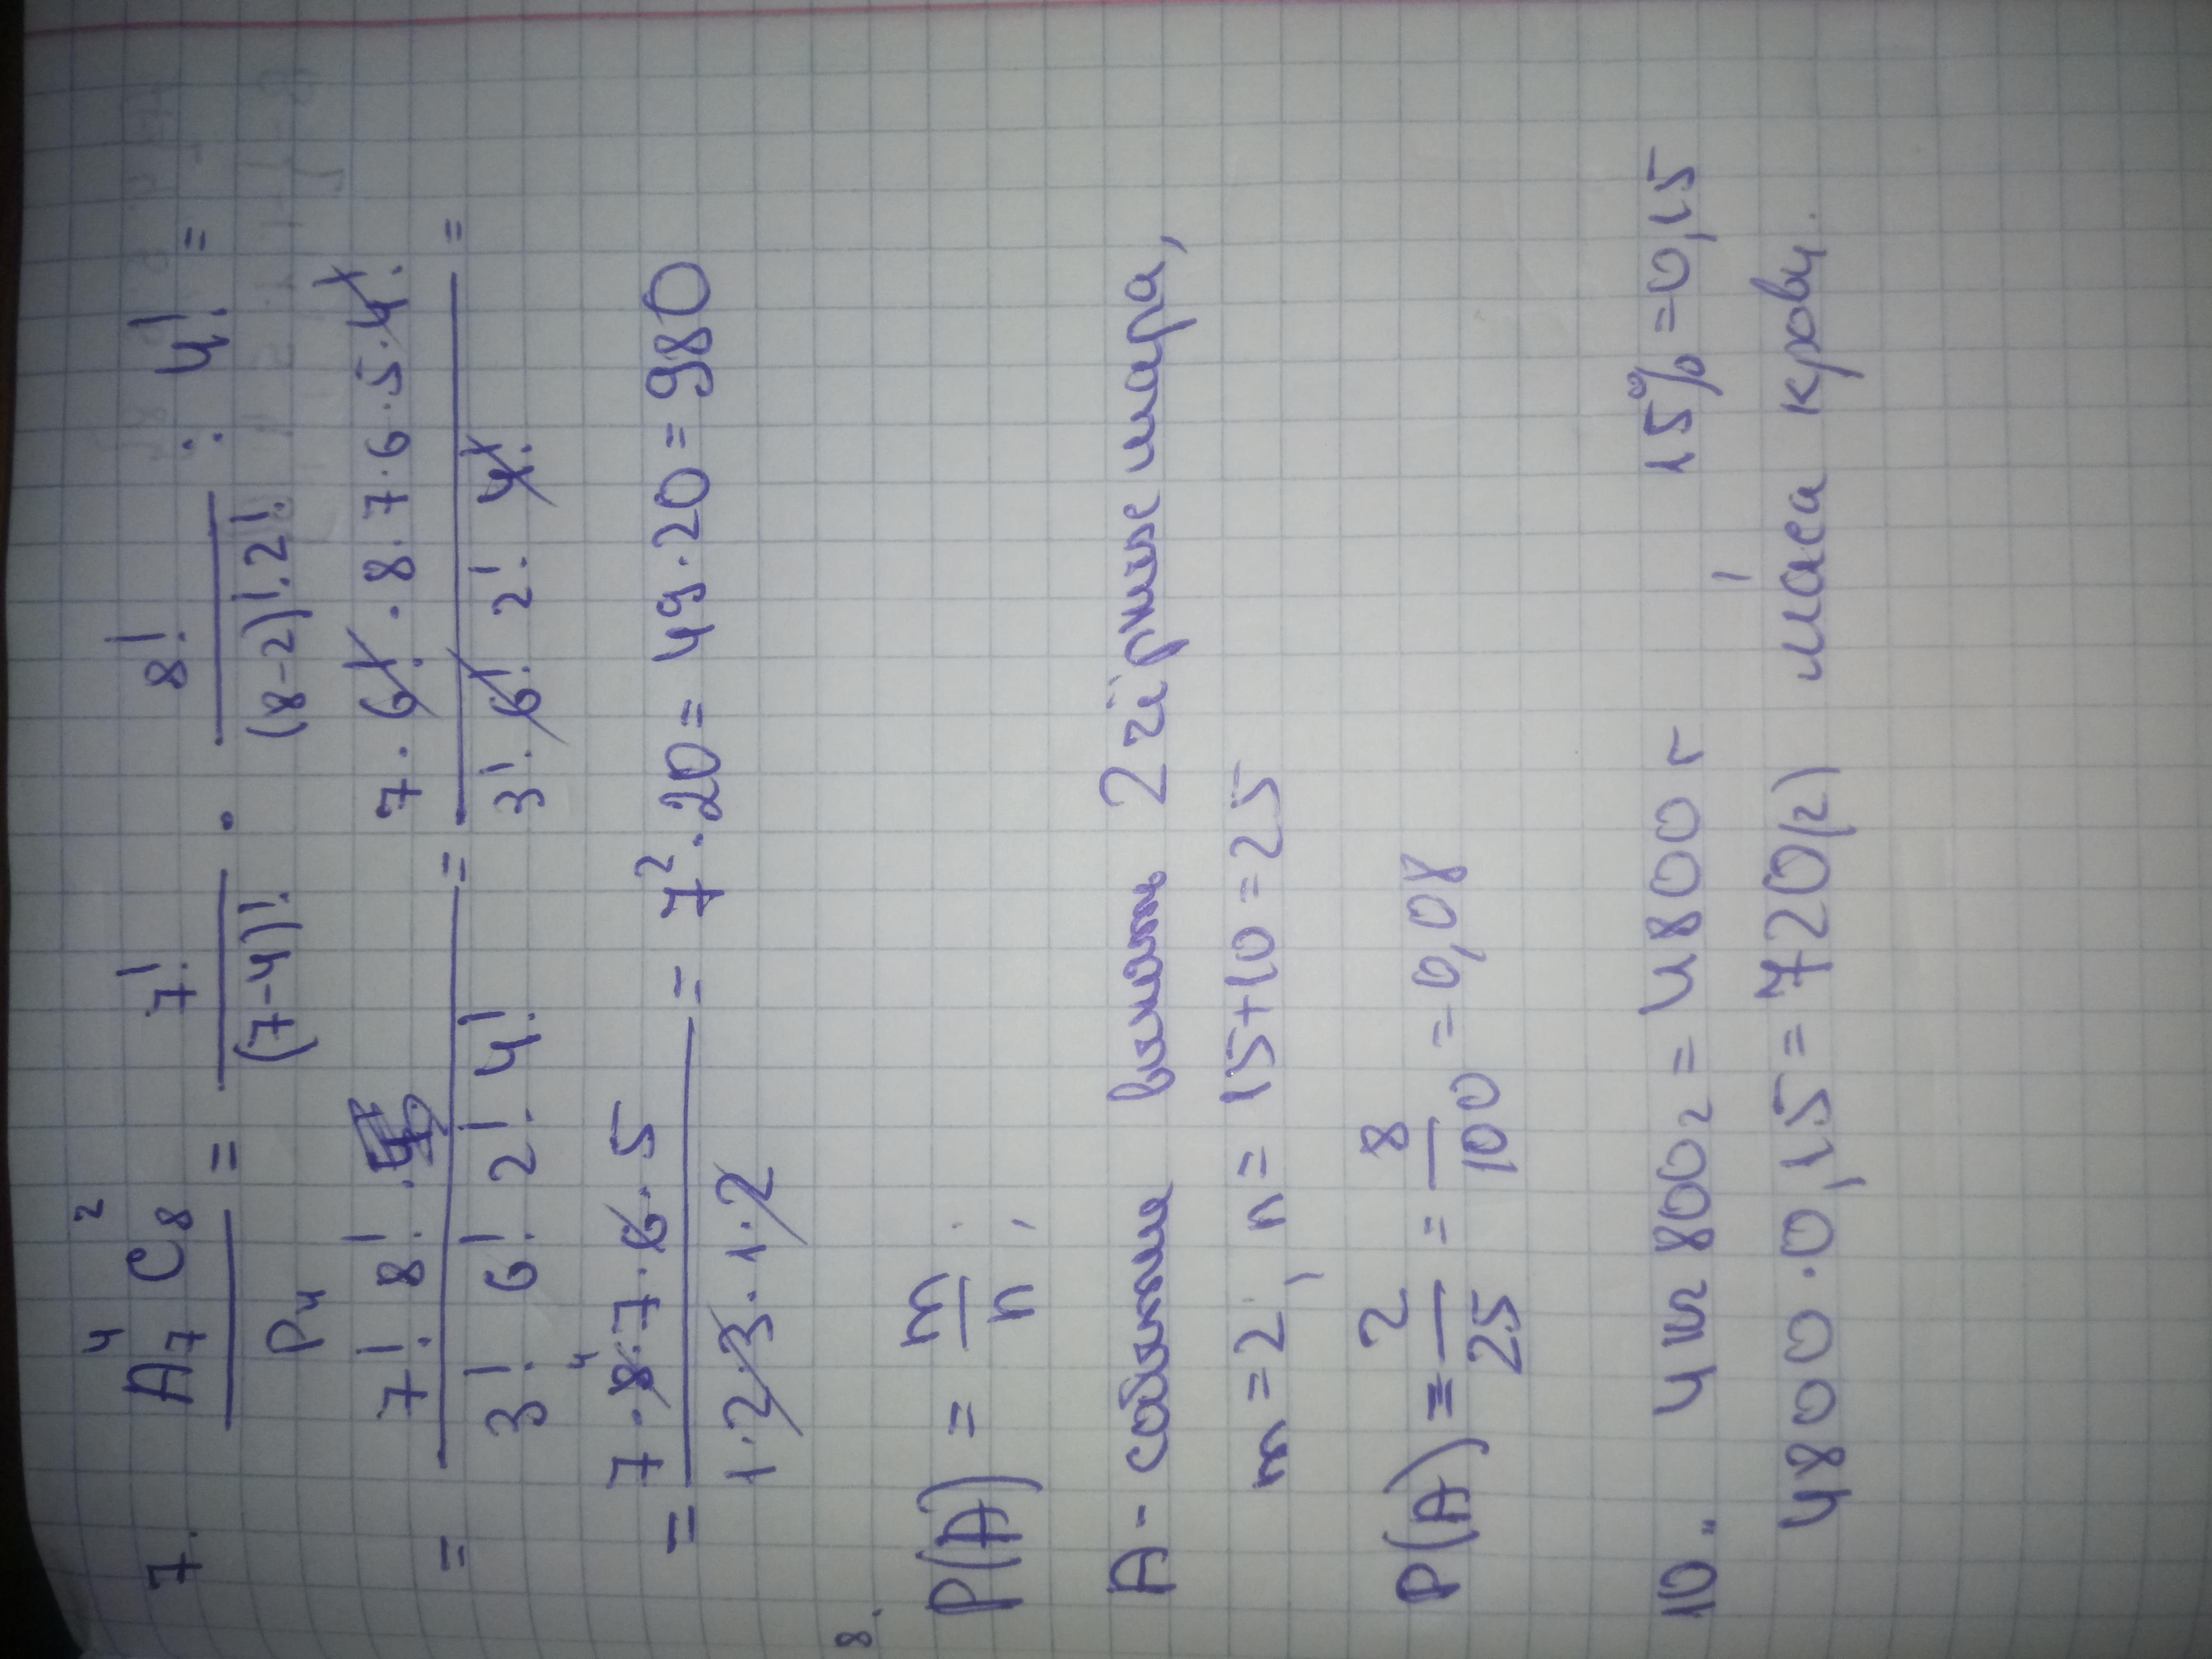 7. A₇⁴ C₈² / P₄ = 7! / (7-4)! · 8! / (8-2)! 2! : 4! =
= 7! 8! / 3! 6! 2! 4! = 7 · 6! · 8 · 7 · 6 · 5 · 4! / 3! · 6! 2! 4! =
= 7 · 8 · 7 · 6 · 5 / 1 · 2 · 3 · 1 · 2 = 7² · 20 = 49 · 20 = 980
8.
P(A) = m/n ;
A -
m = 2, n = 15+10 = 25
P(A) = 2/25 = 8/100 = 0,08
10. 4 кг 800 г = 4800 г 15% = 0,15
4800 · 0,15 = 720 (г) маса крові.